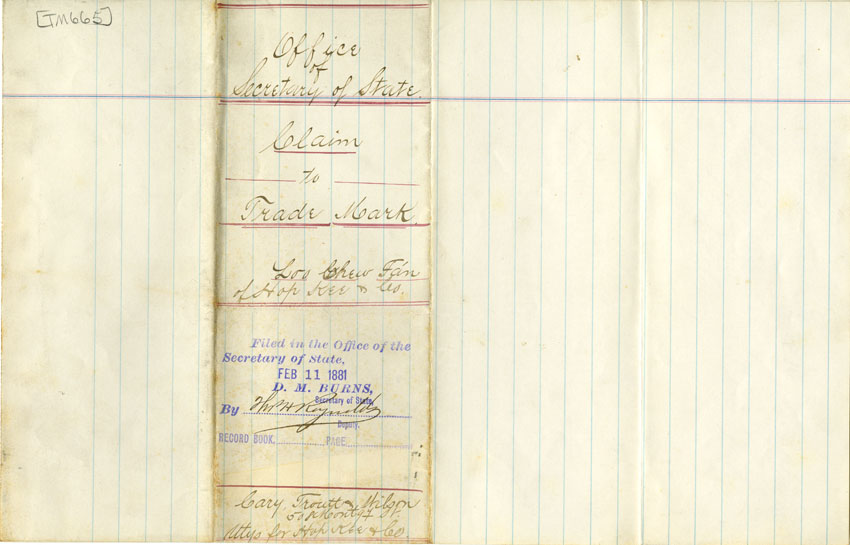 [TM665]
Office
of
Secretary of State.
Claim
to
Trade Mark.
Loo Chew Fán
of Hop Kee & Co.
Filed in the Office of the
Secretary of State.
FEB 11 1881
D. M. BURNS,
Secretary of State,
By Thos H Reynolds
Deputy.
RECORD BOOK, PAGE
Cary, Troutt & Wilson
Attys for Hop Kee & Co.